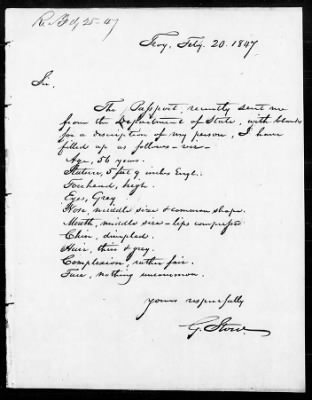 Re. Feb 25-47
Troy, Feby. 20. 1847
Sir.
The Passport, recently sent me
from the Department of State, with blanks
for a discription of my person, I have
filled up as follows - viz -
Age, 56 years.
Stature, 5 feet 9 inches Engl.
Forehead, high.
Eyes, Gray
Nose, middle size & common shape.
Mouth, middle size - lips compressed
Chin, dimpled.
Hair, thin & grey.
Complexion, rather fair.
Face, nothing uncommon.
yours respectfully
G.